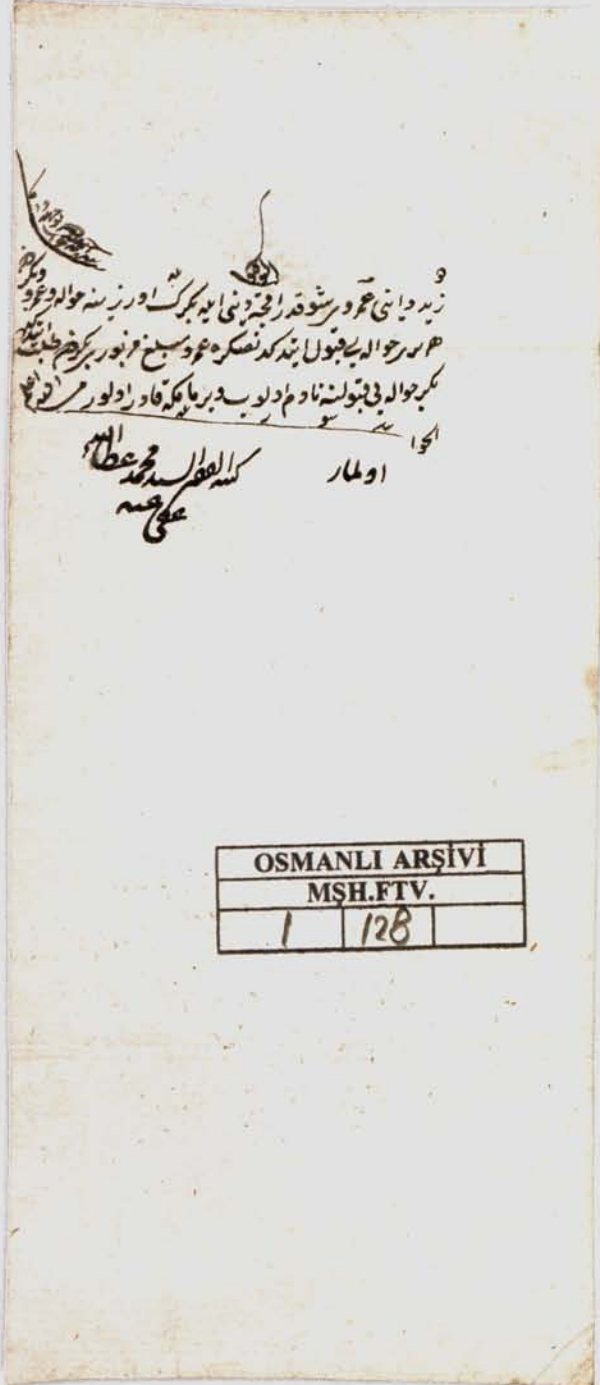 زيد داينى عمروى شو قدر اقچه دينى ايله بكرك اوزرينه حواله و عمرو و بكر
هر برى حواله يى قبول ايتدكدنصكره عمرو مبلغ مزبورى بكردن طلب ايتدكده
بكر حواله يى قبولنه نادم اولوب ويرمامكه قادر اولورمى
الجواب
اولماز
كتبه الفقير السيد محمد عطاء الله
عفى عنه
OSMANLI ARŞİVİ
MŞH.FTV.
1 128